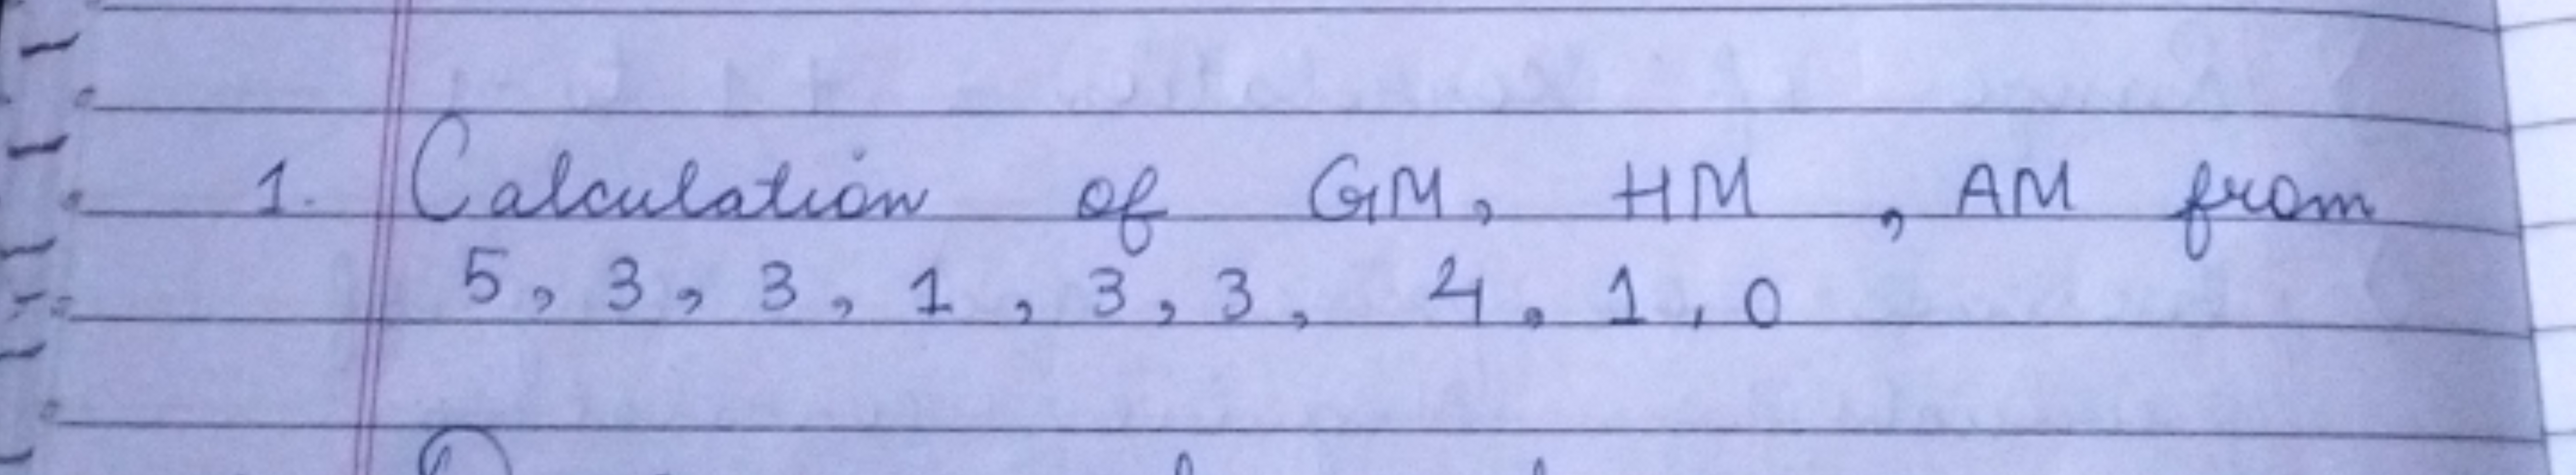 1. Calculation of GM, HM, AM from
5, 3, 3, 1, 3, 3, 4, 1, 0